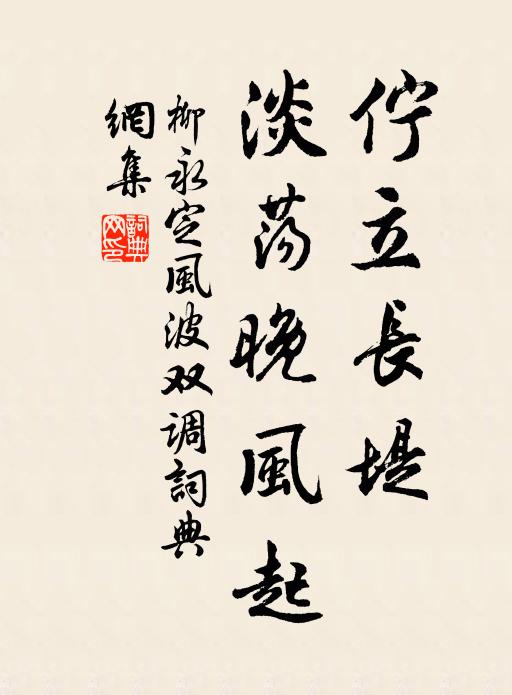 佇立長堤
淡蕩晚風起
柳永定風波双调詞典
網集
詞典網印